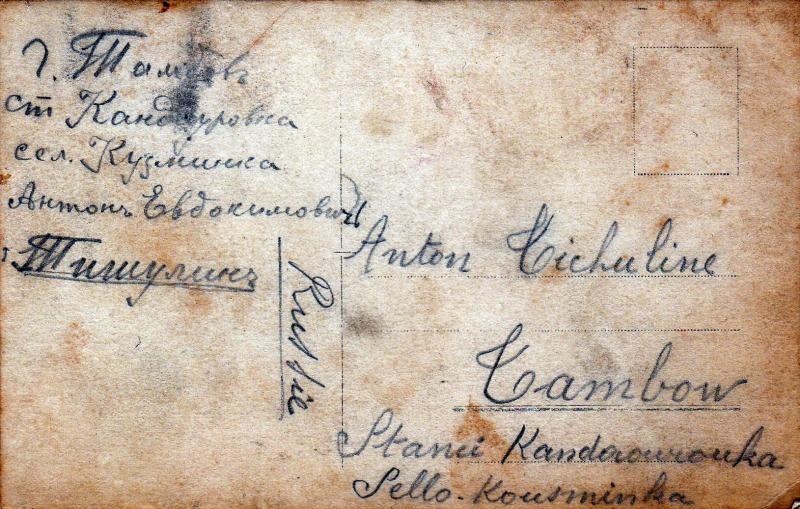 г. Тамбовъ
ст Кандауровка
сел. Кузминка
Антонъ Евдокимовичъ
Тишулинъ
Russie
Anton Tichuline
Tambow
Stanii Kandaourovka
Sello-Kousminka